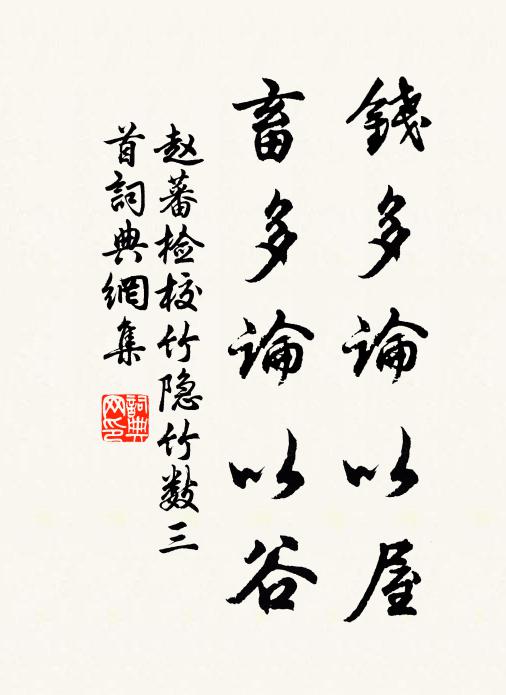 錢多論以屋
畜多論以谷
赵蕃检校竹隐竹数三
首詞典網集
詞典网印